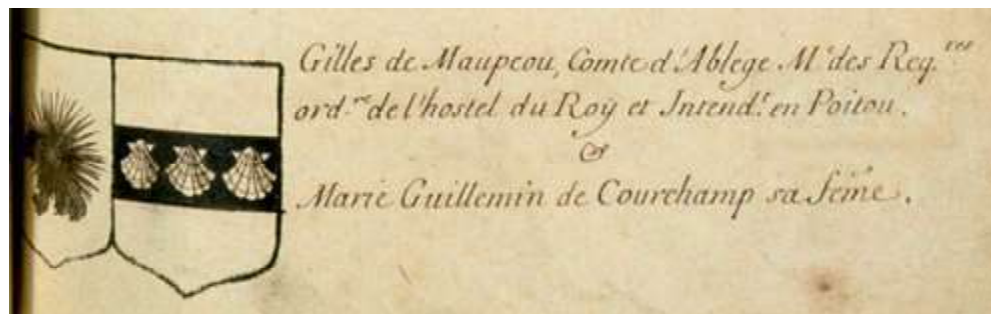 Gilles de Maupeou, Comte d'Ablege M.r des Req.res
ord.re de l'hostel du Roÿ et Intend.t en Poitou.
&
Marie Guillemin de Courchamp sa fem̄e.